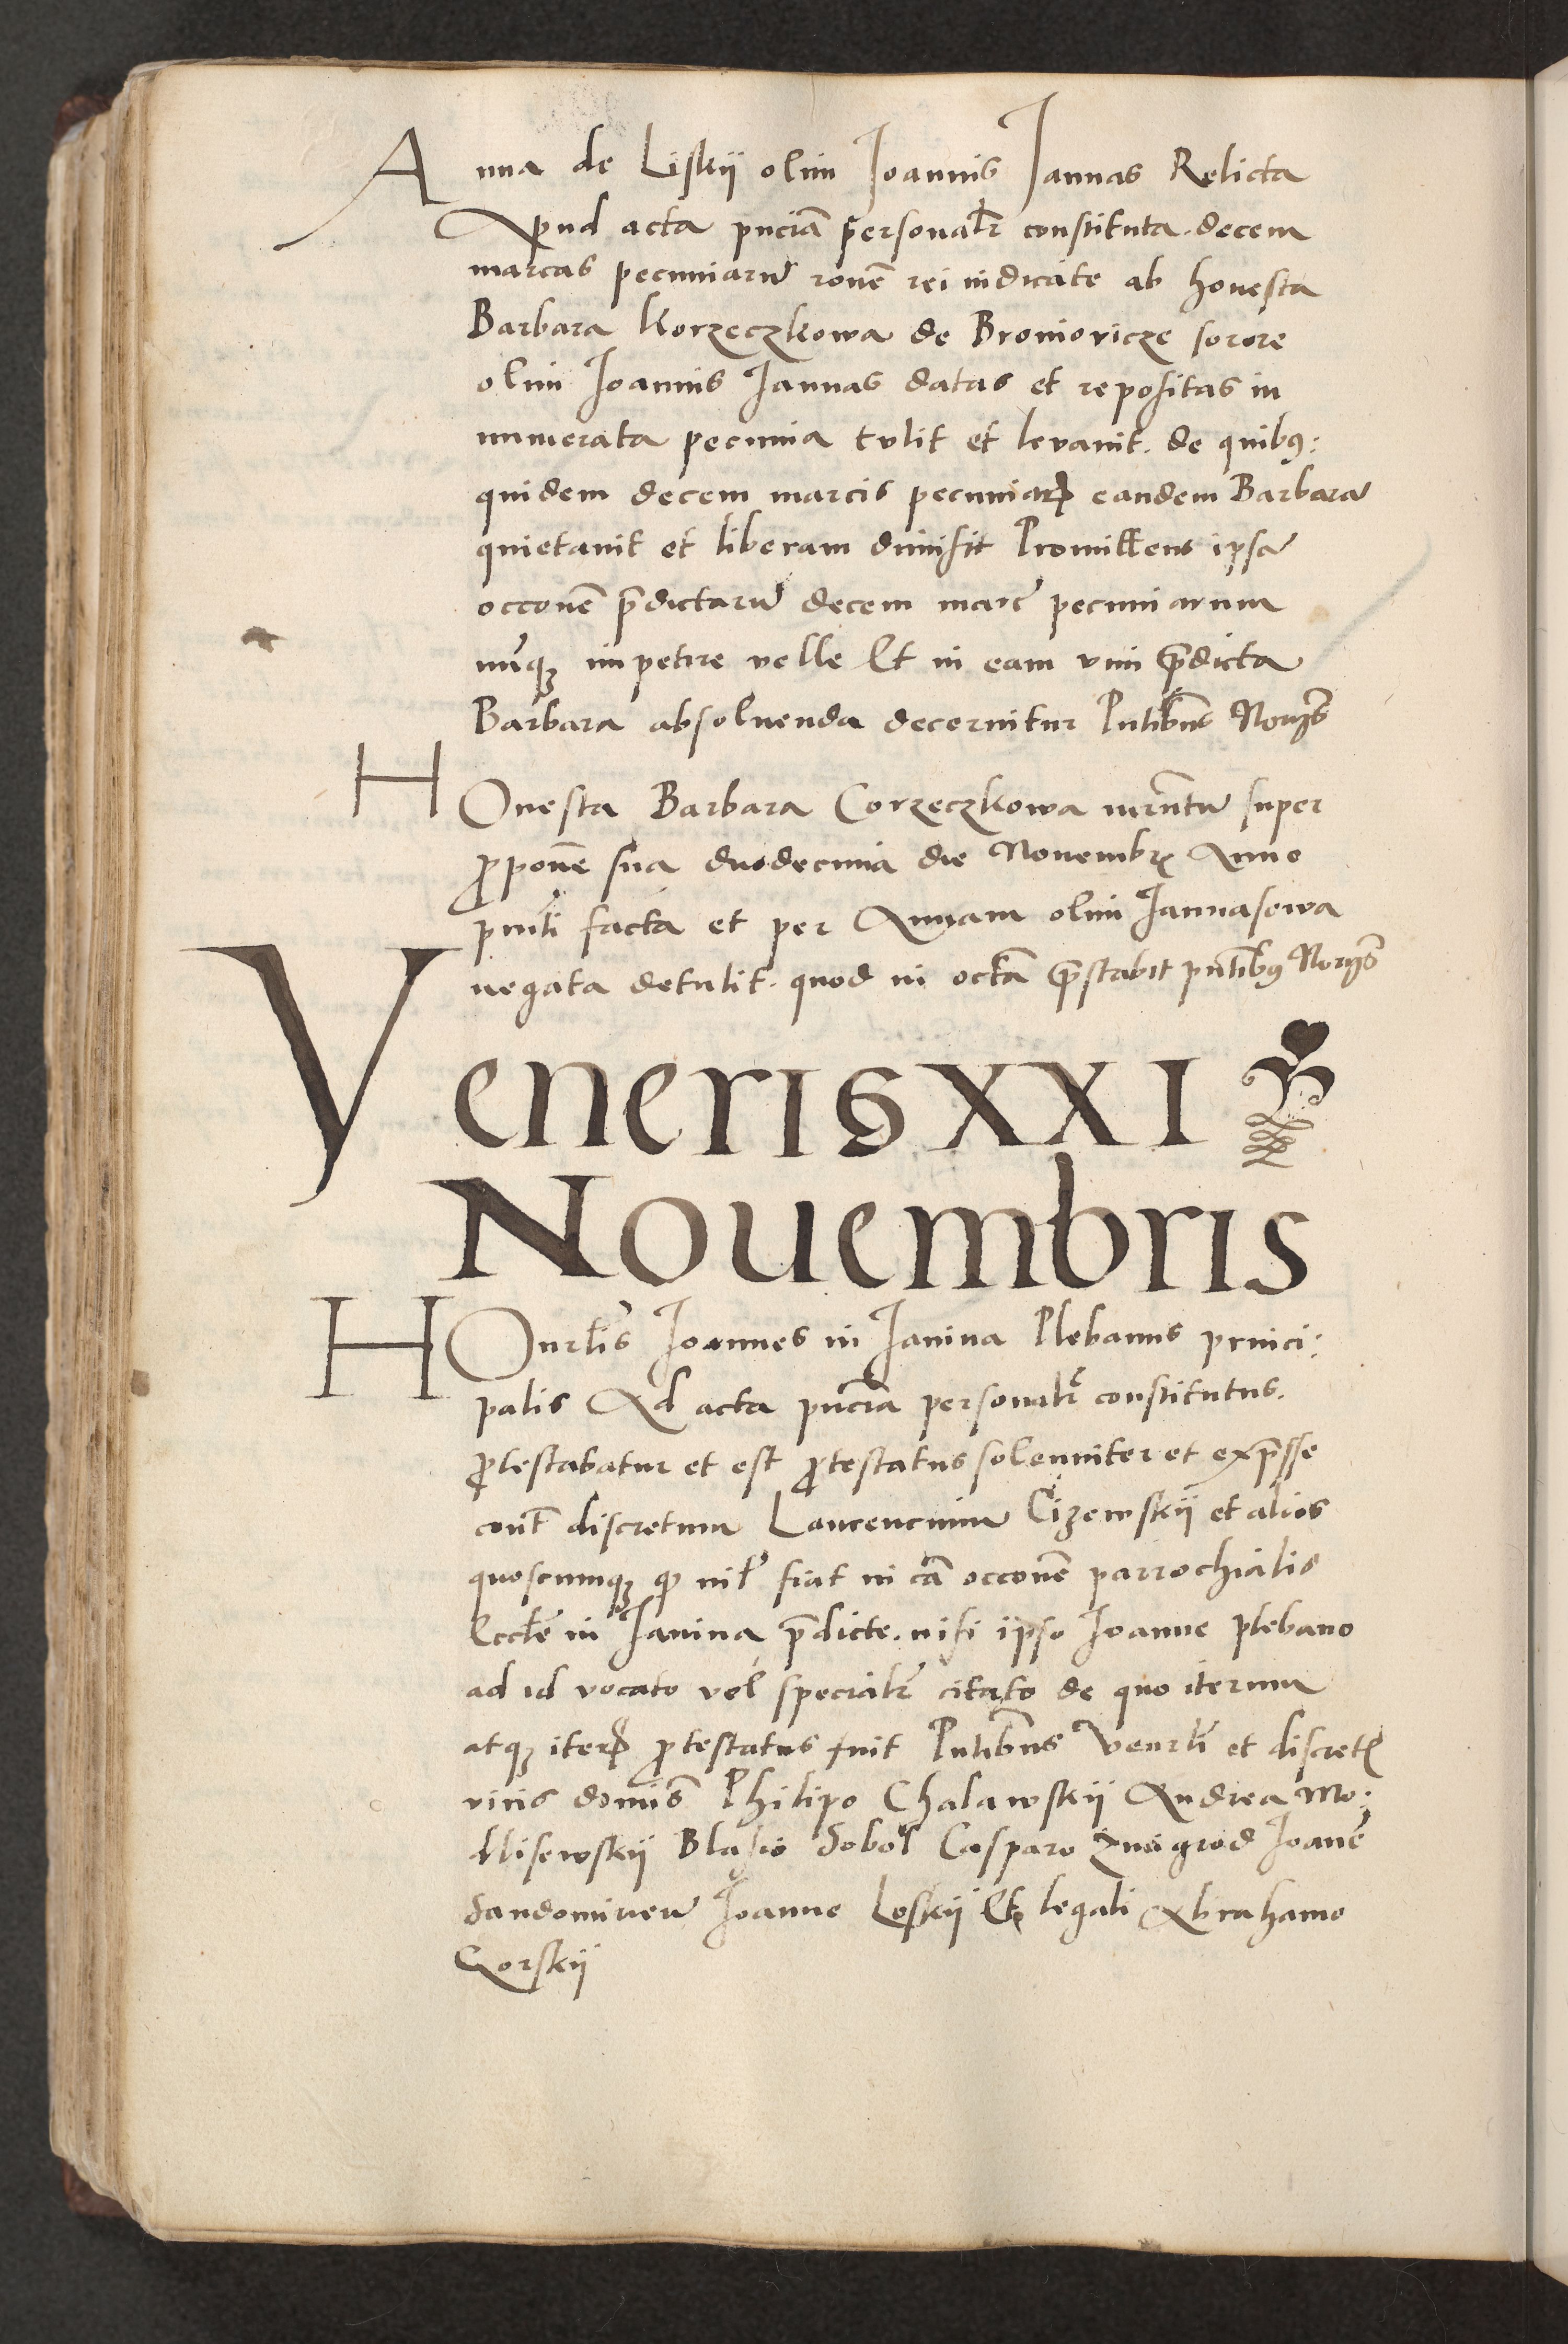 Anna de Liskij olim Joannis Jannas Relicta
Apud acta pnciã personalr̃ constituta. decem
marcas pecuniarũ ronẽ rei iudicate ab honesta
Barbara Korzeczkowa de Broniovicze sorore
olim Joannis Jannas datas et repositas in
numerata pecunia tulit et levauit. de quibꝯ:
quidem decem marcis pecuniarꝝ eandem Barbarã
quietauit et liberam dimisit Promittens ipsã
occonẽ p̃dictarũ decem marc̃ pecuniarum
nũqꝫ impetere velle Et in eam vim p̃dicta
Barbara absoluenda decernitur Pñtibus Norijs̃
HOnesta Barbara Corzeczkowa iurñtũ super
ꝓponẽ sua duodecima die Nouembrꝭ Anno
pñti facta et per Annam olim Jannasowa
negata detulit. quod in octã p̃stabit pñtibꝯ Norijs̃
Veneris XXI
Nouembris
HOnrl̃is Joannes in Janina Plebanus princi:
palis Ad acta pnciã personalr̃ constitutus.
ꝓtestabatur et est ꝓtestatus solenniter et exp̃sse
cont̃ discretum Laurencium Cizewskij et alios
quoscumqꝫ ꝙ nil fiat in cã occonẽ parrochialis
Eccl̃e in Janina p̃dicte. nisi ipso Joanne plebano
ad id vocato vel specialr̃ citato de quo iterum
atqꝫ iterꝝ ꝓtestatus fuit Pñtibus Venrl̃i et discretꝭ
viris domis̃ Philipo Chalawskij Andrea Mo:
dlisewskij Blasio Sobol Casparo Xviigrod Joanẽ
Sandomireñ Joanne Leskij Et legali Abrahamo
Gorskij